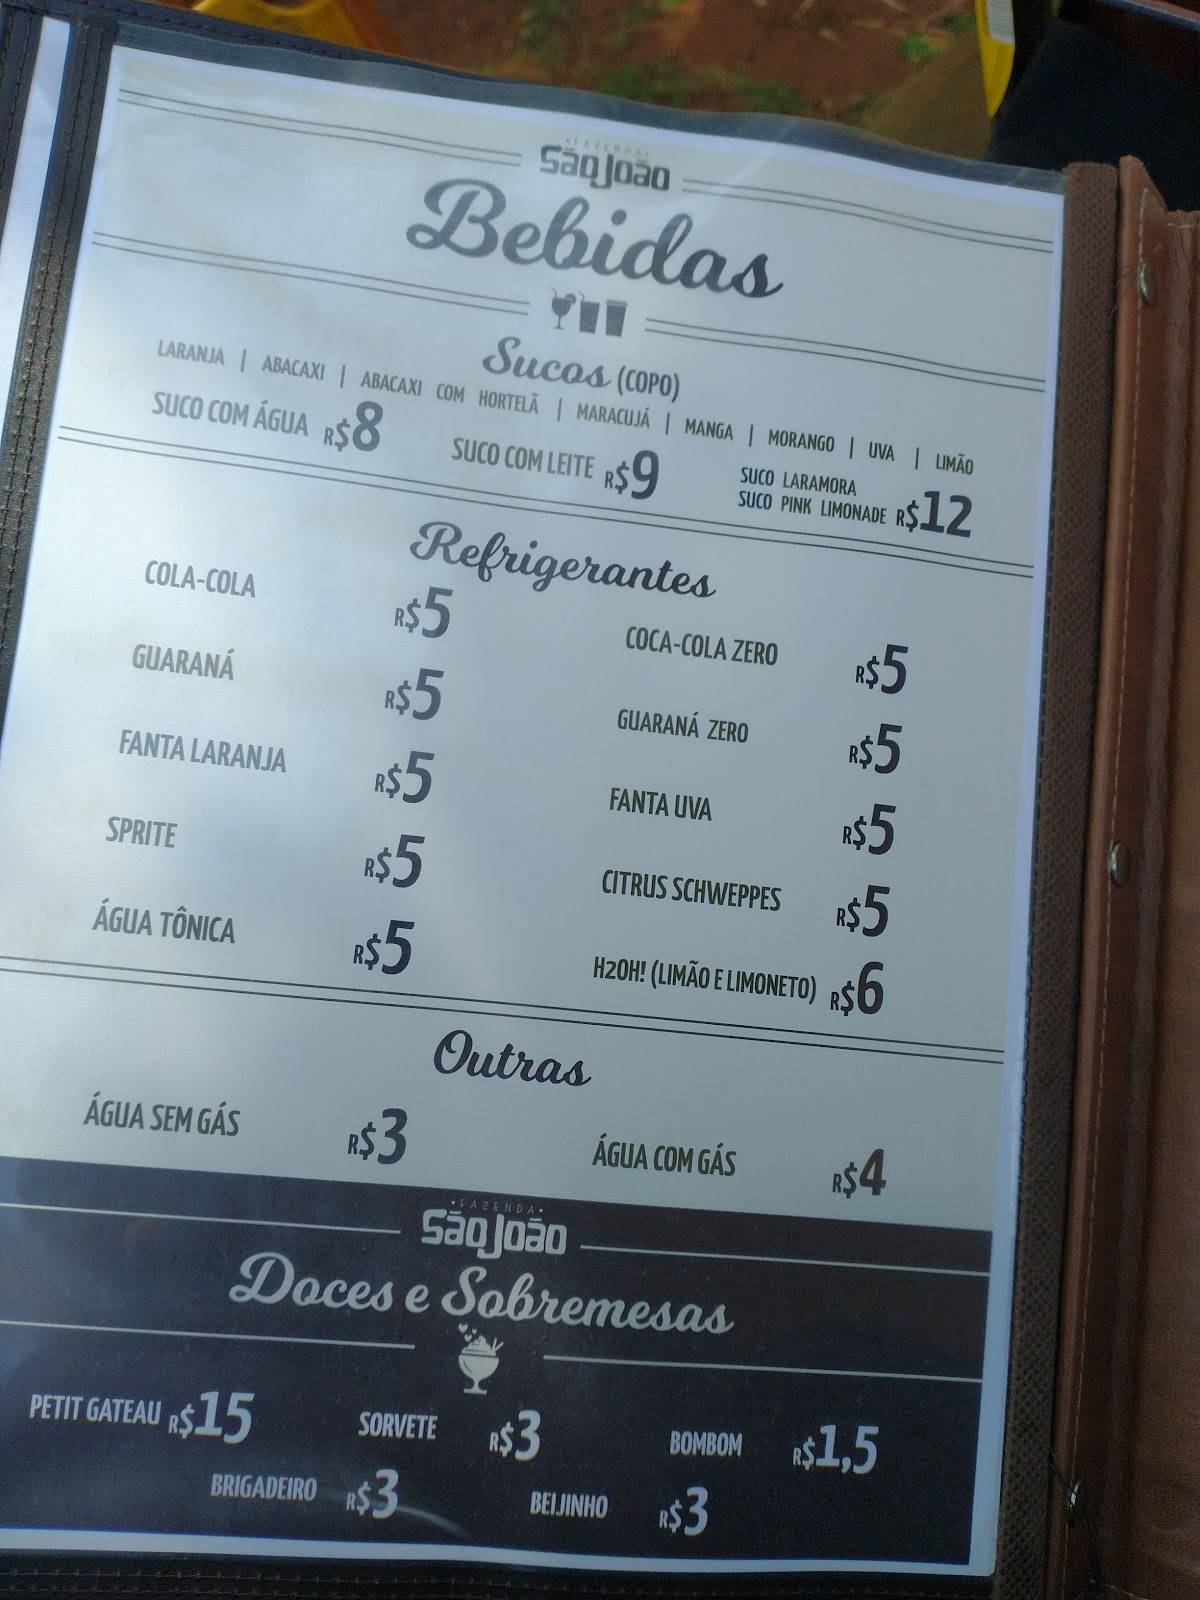 FAZENDA
SãoJoão
Bebidas
Sucos (COPO)
LARANJA | ABACAXI | ABACAXI COM HORTELÃ | MARACUJÁ | MANGA | MORANGO | UVA | LIMÃO
SUCO COM ÁGUA R$8 SUCO COM LEITE R$9 SUCO LARAMORA
SUCO PINK LIMONADE R$12
Refrigerantes
COLA-COLA R$5 COCA-COLA ZERO R$5
GUARANÁ R$5 GUARANÁ ZERO R$5
FANTA LARANJA R$5 FANTA UVA R$5
SPRITE R$5 CITRUS SCHWEPPES R$5
ÁGUA TÔNICA R$5 H2OH! (LIMÃO E LIMONETO) R$6
Outras
ÁGUA SEM GÁS R$3 ÁGUA COM GÁS R$4
FAZENDA
SãoJoão
Doces e Sobremesas
PETIT GATEAU R$15 SORVETE R$3 BOMBOM R$1,5
BRIGADEIRO R$3 BEIJINHO R$3